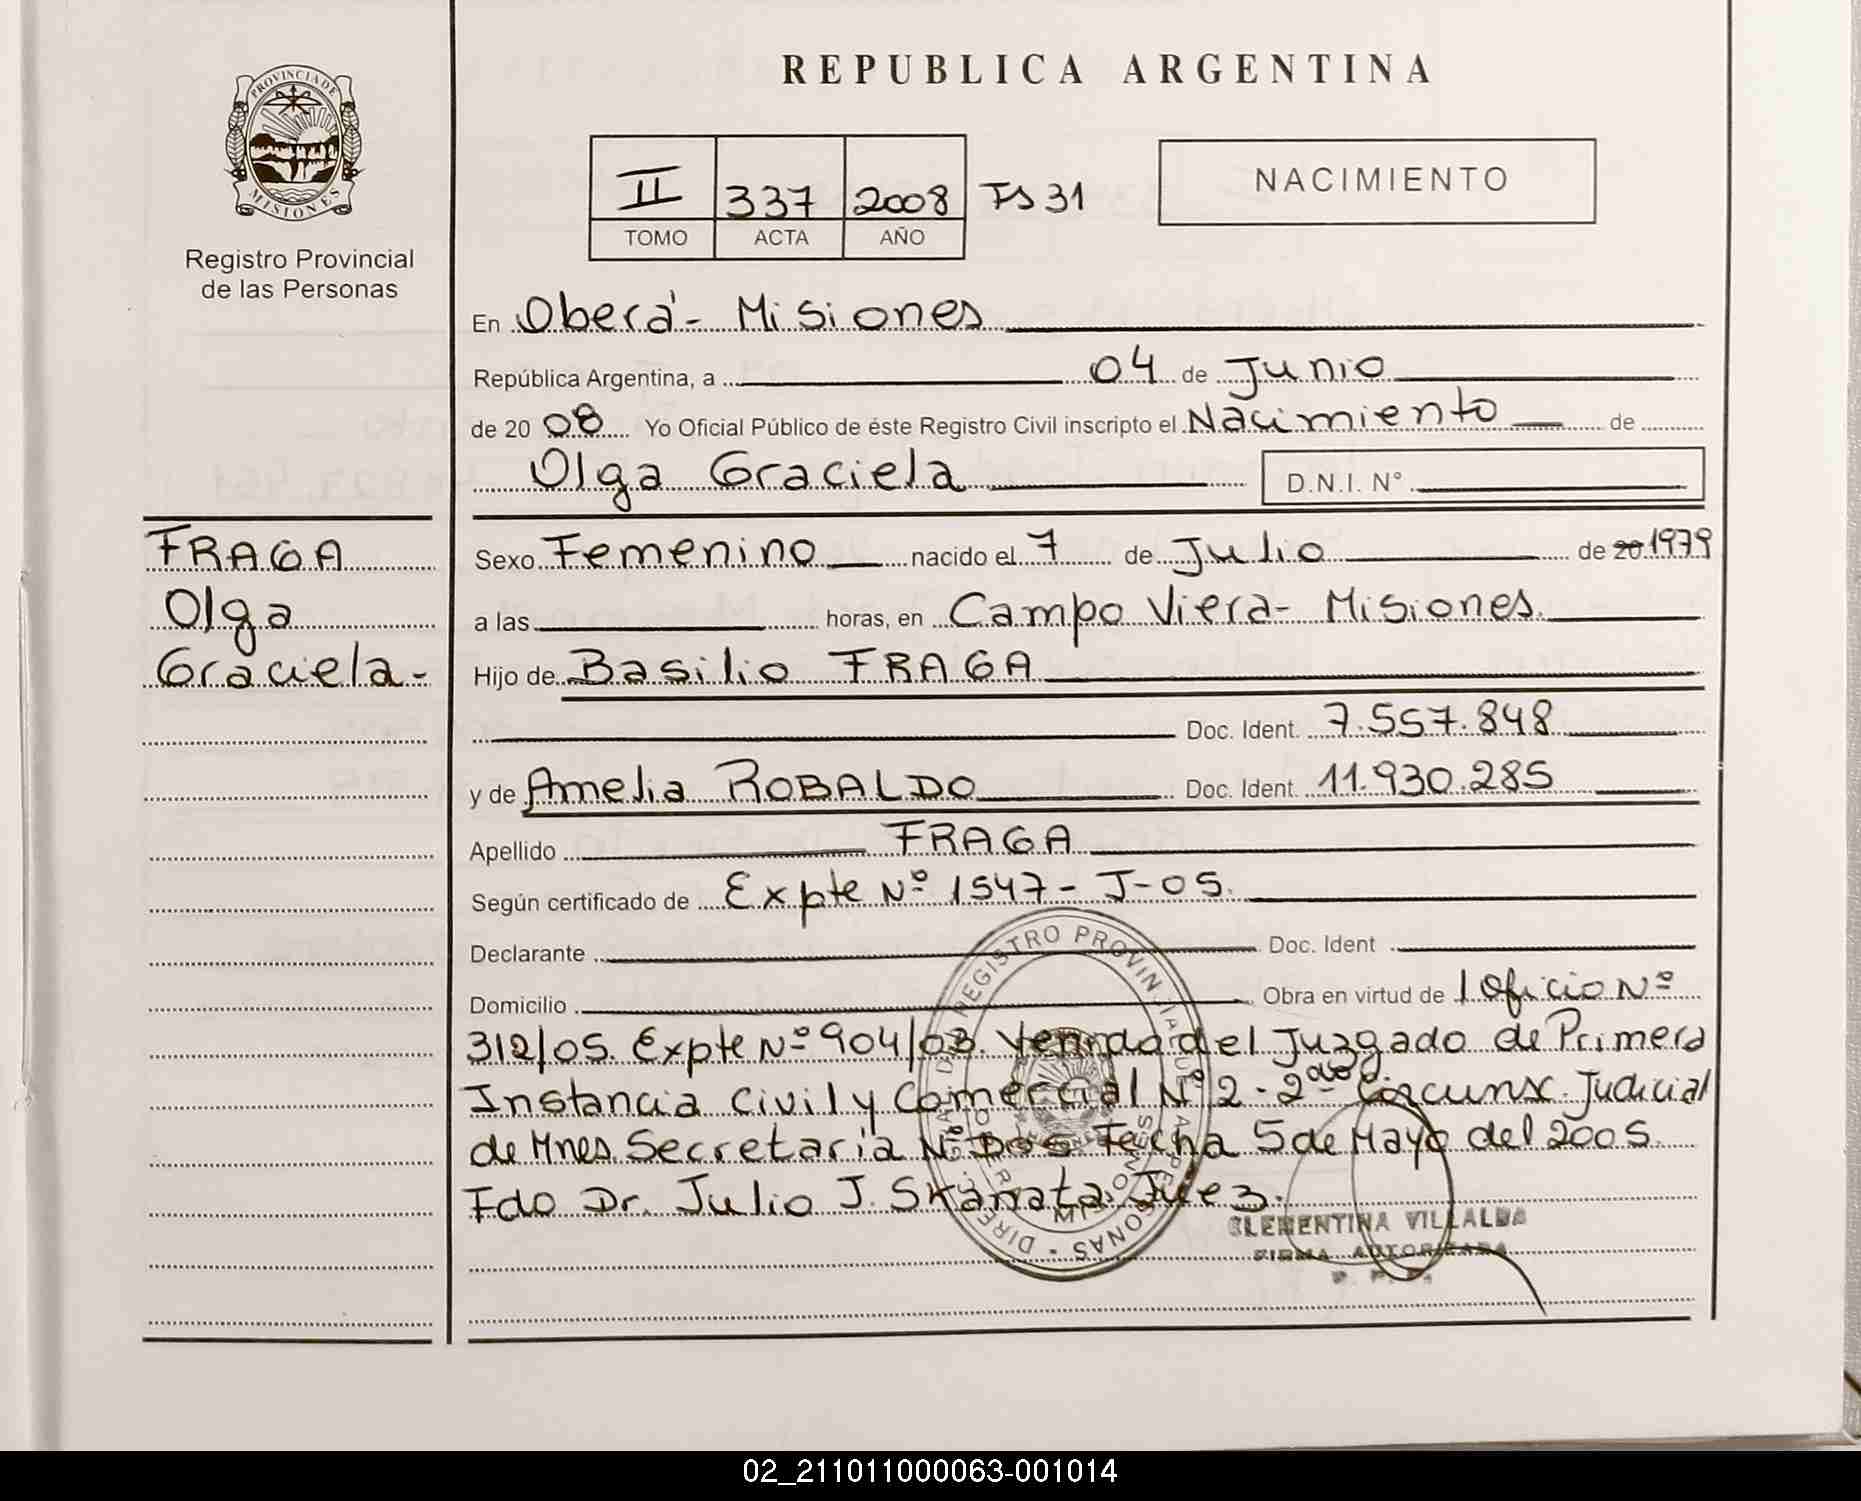 REPUBLICA ARGENTINA
PROVINCIA DE
MISIONES
Registro Provincial
de las Personas
II 337 2008 Fs 31
TOMO ACTA AÑO
NACIMIENTO
En Oberá - Misiones
República Argentina, a 04 de Junio
de 20 08 Yo Oficial Público de éste Registro Civil inscripto el Nacimiento de
Olga Graciela D.N.I. N°
FRAGA
Olga
Graciela -
Sexo Femenino nacido el 7 de Julio de 20 1979
a las horas, en Campo Viera - Misiones.
Hijo de Basilio FRAGA
Doc. Ident. 7.557.848
y de Amelia ROBALDO Doc. Ident. 11.930.285
Apellido FRAGA
Según certificado de Expte Nº 1547 - J - 05.
Declarante Doc. Ident
Domicilio Obra en virtud de 1 Oficio Nº
312/05. Expte Nº 904/03. Venido del Juzgado de Primera
Instancia Civil y Comercial Nº 2 - 2da Circunsc. Judicial
de Mnes Secretaría Nº Dos Fecha 5 de Mayo del 2005.
Fdo Dr. Julio J. Skanata Juez.
CLEMENTINA VILLALBA
FIRMA AUTORIZADA
02_211011000063-001014